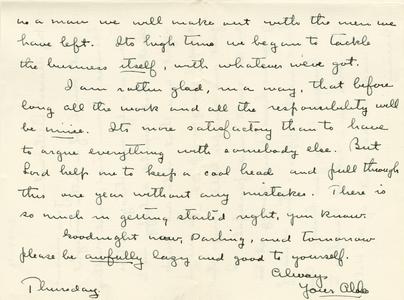 as a man we will make out with the men we
have left. Its high time we began to tackle
the business itself, with whatever we've got.
I am rather glad, in a way, that before
long all the work and all the responsibility will
be mine. Its more satisfactory than to have
to argue everything with somebody else. But
Lord help me to keep a cool head and pull through
this one year without any mistakes. There is
so much in getting started right, you know.
Goodnight now, Darling, and tomorrow
please be awfully lazy and good to yourself.
Always
Your Aldo
Thursday.